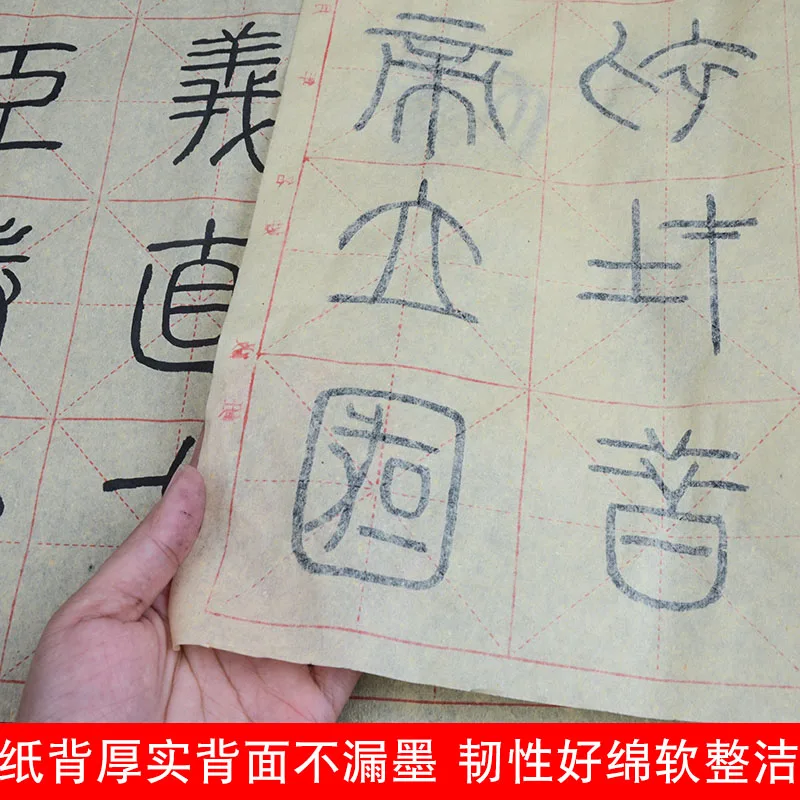 義直
臣
帝立國
初在昔
纸背厚实背面不漏墨 韧性好绵软整洁